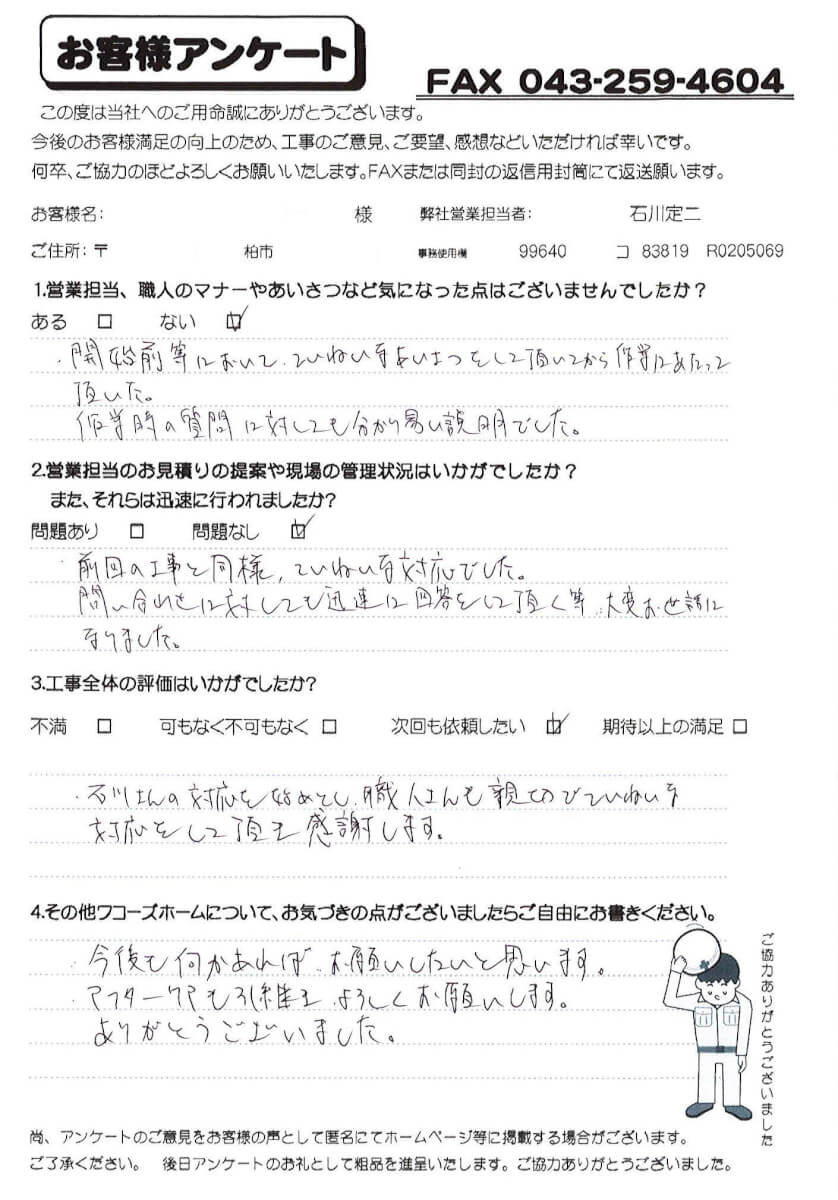 お客様アンケート
FAX 043-259-4604
この度は当社へのご用命誠にありがとうございます。
今後のお客様満足の向上のため、工事のご意見、ご要望、感想などいただければ幸いです。
何卒、ご協力のほどよろしくお願いいたします。FAXまたは同封の返信用封筒にて返送願います。
お客様名: 様 弊社営業担当者: 石川定二
ご住所: 〒 柏市 事務使用欄 99640 コ 83819 R0205069
1.営業担当、職人のマナーやあいさつなど気になった点はございませんでしたか?
ある □ ない ☑
・開始前等において、ていねいなあいさつをして頂いてから作業にあたって
頂いた。
作業時の質問に対しても分かり易い説明でした。
2.営業担当のお見積りの提案や現場の管理状況はいかがでしたか?
また、それらは迅速に行われましたか?
問題あり □ 問題なし ☑
・前回の工事と同様、ていねいな対応でした。
問い合わせに対しても迅速に回答をして頂く等、大変お世話に
なりました。
3.工事全体の評価はいかがでしたか?
不満 □ 可もなく不可もなく □ 次回も依頼したい ☑ 期待以上の満足 □
・石川さんの対応を始めとし、職人さんも親切でていねいな
対応をして頂き感謝します。
4.その他ワコーズホームについて、お気づきの点がございましたらご自由にお書きください。
・今後も何かあれば、お願いしたいと思います。
・アフターケアも引続き、よろしくお願いします。
ありがとうございました。
ご協力ありがとうございました
尚、アンケートのご意見をお客様の声として匿名にてホームページ等に掲載する場合がございます。
ご了承ください。 後日アンケートのお礼として粗品を進呈いたします。ご協力ありがとうございました。